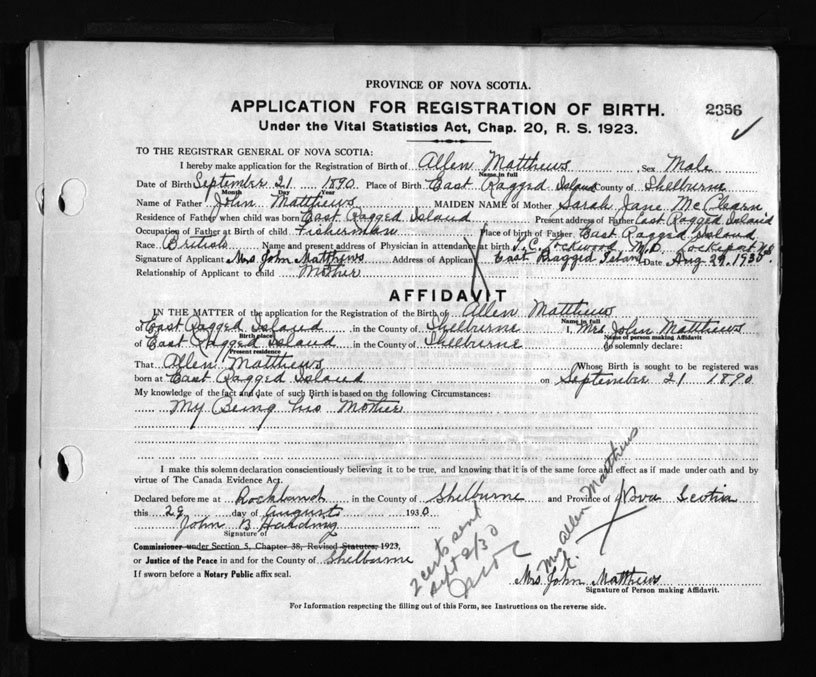 PROVINCE OF NOVA SCOTIA.
APPLICATION FOR REGISTRATION OF BIRTH. 2356
Under the Vital Statistics Act, Chap. 20, R. S. 1923.
TO THE REGISTRAR GENERAL OF NOVA SCOTIA:
I hereby make application for the Registration of Birth of Allen Matthews Sex Male
Name in full
Date of Birth September 21 1890 Place of Birth East Ragged Island County of Shelburne
Month Day Year
Name of Father John Matthews MAIDEN NAME of Mother Sarah Jane McClearn
Residence of Father when child was born East Ragged Island Present address of Father East Ragged Island
Occupation of Father at Birth of child Fisherman Place of birth of Father East Ragged Island
Race British Name and present address of Physician in attendance at birth J.C. Lockwood M.D. Lockeport N.S.
Signature of Applicant Mrs John Matthews Address of Applicant East Ragged Island Date Aug 29. 1930
Relationship of Applicant to child Mother
AFFIDAVIT
IN THE MATTER of the application for the Registration of the Birth of Allen Matthews
Name in full
of East Ragged Island in the County of Shelburne I, Mrs John Matthews
Birth place Name of person making Affidavit
of East Ragged Island in the County of Shelburne do solemnly declare:
Present residence
That Allen Matthews Whose Birth is sought to be registered was
born at East Ragged Island on September 21 1890
My knowledge of the fact and date of such Birth is based on the following Circumstances:
My Being his Mother
I make this solemn declaration conscientiously believing it to be true, and knowing that it is of the same force and effect as if made under oath and by
virtue of The Canada Evidence Act.
Declared before me at Rockland in the County of Shelburne and Province of Nova Scotia
this 29 day of August 1930
John B Harding
Signature of
Commissioner under Section 5, Chapter 38, Revised Statutes, 1923,
or Justice of the Peace in and for the County of Shelburne
If sworn before a Notary Public affix seal.
2 certs sent
Sept 2/30
Mrs Allen Matthews
Mrs. John Matthews
Signature of Person making Affidavit.
For Information respecting the filling out of this Form, see Instructions on the reverse side.